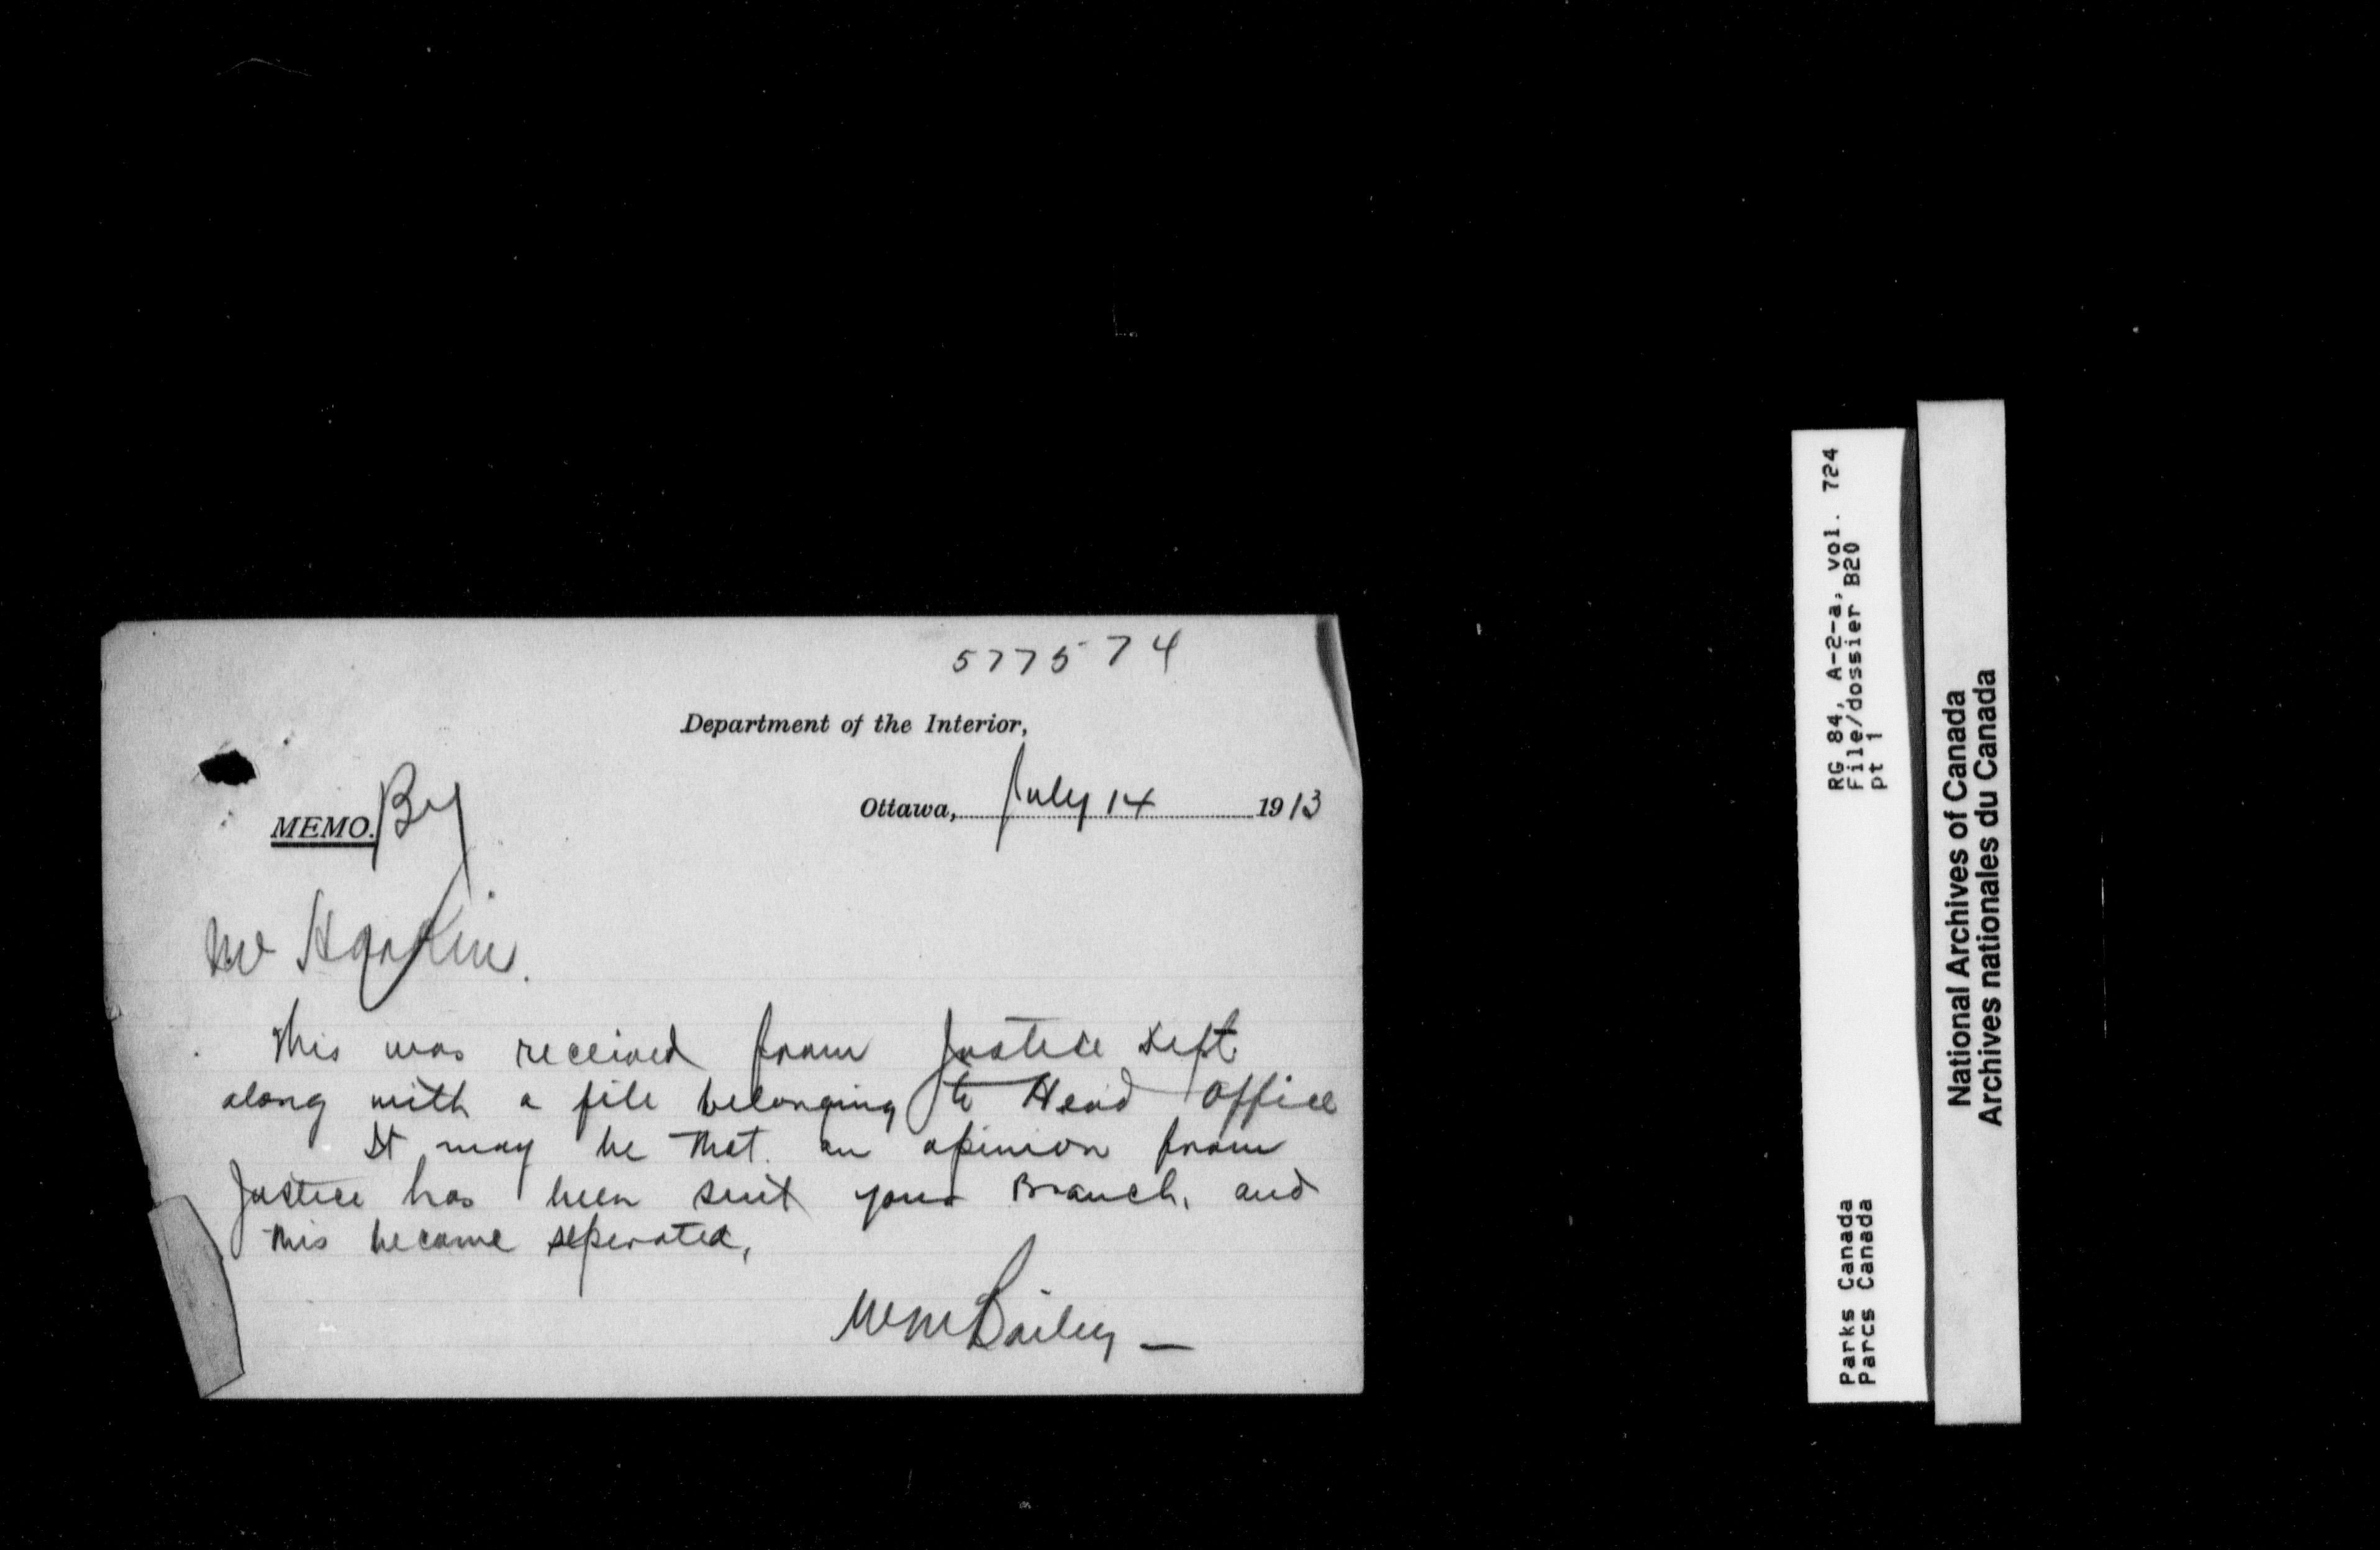 577574
Department of the Interior,
Ottawa, July 14 1913
MEMO.
Mr Harkin.
This was received from Justice Dept
along with a file belonging to Head Office
It may be that an opinion from
Justice has been sent your Branch, and
this became seperated,
Wm Bailey —
RG 84, A-2-a, vol. 724
File/dossier B20
pt 1
Parks Canada
Parcs Canada
National Archives of Canada
Archives nationales du Canada